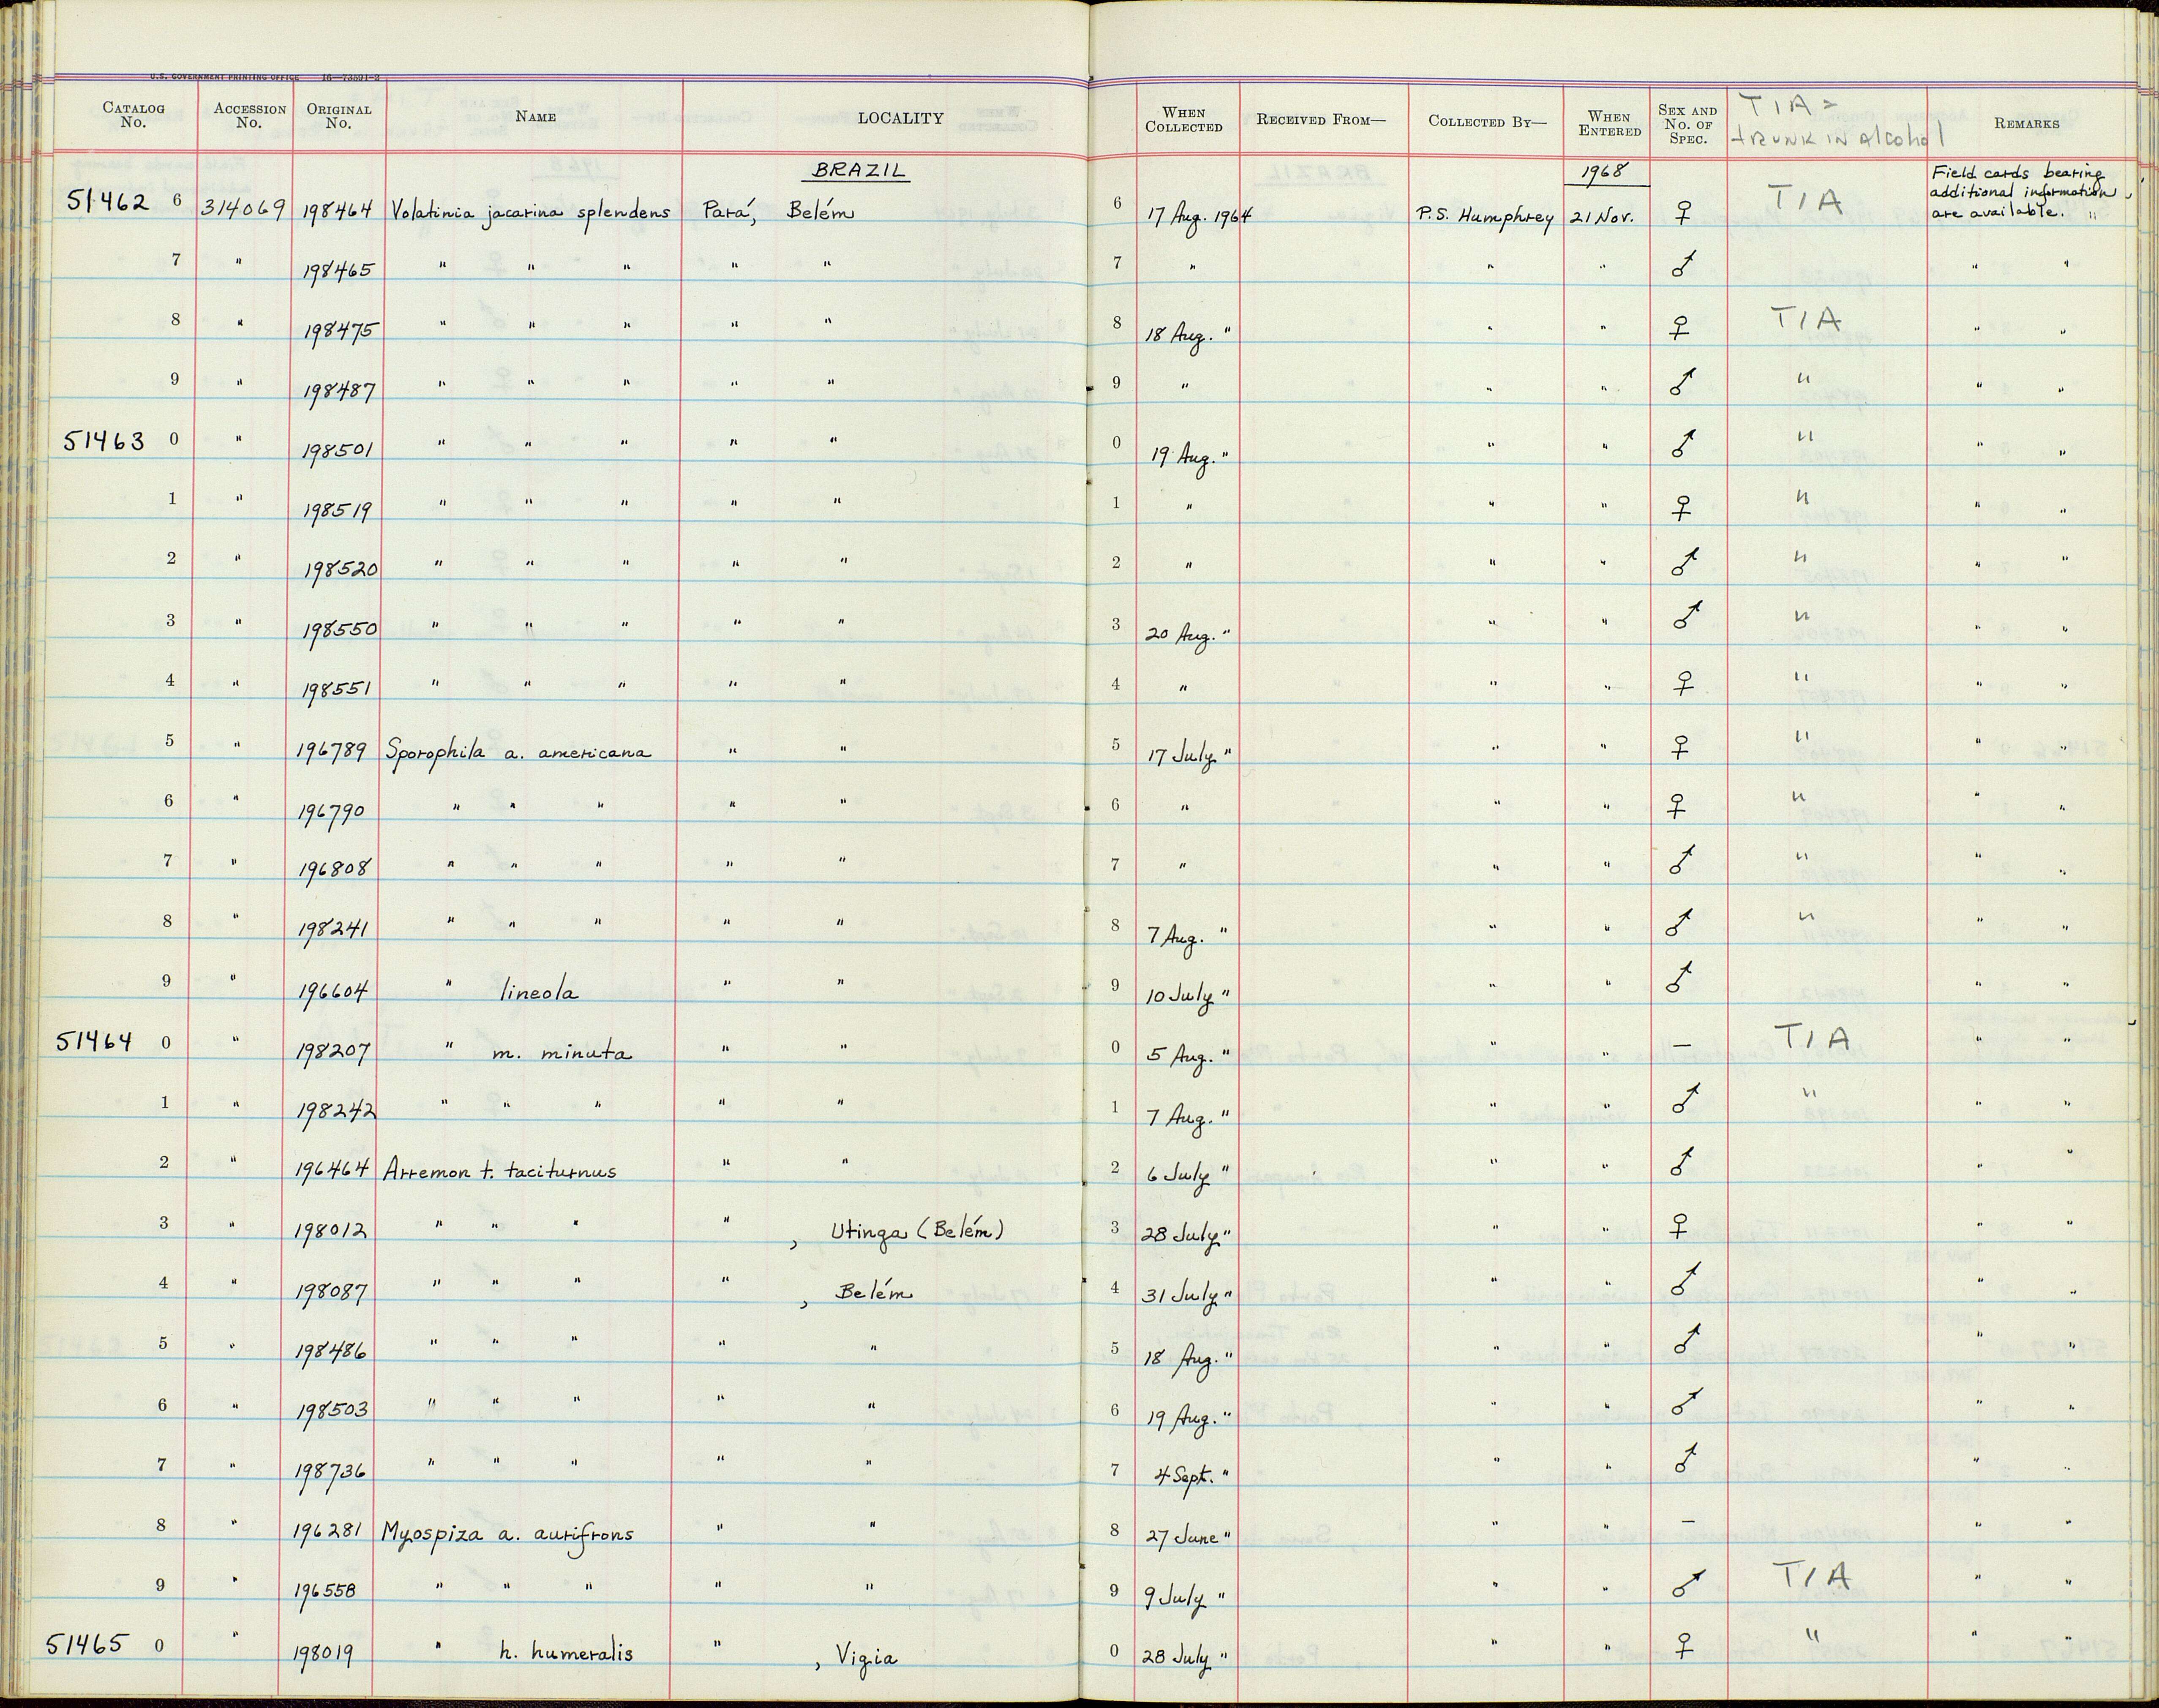 U.S. GOVERNMENT PRINTING OFFICE 16—73591-2
CATALOG No. ACCESSION No. ORIGINAL No. NAME LOCALITY WHEN COLLECTED RECEIVED FROM— COLLECTED BY— WHEN ENTERED SEX AND No. OF SPEC. TIA = trunk in alcohol REMARKS
BRAZIL 1968
51462 6 314069 198464 Volatinia jacarina splendens Pará, Belém 6 17 Aug. 1964 P.S. Humphrey 21 Nov. ♀ TIA Field cards bearing additional information are available. "
7 " 198465 " " " " " 7 " " " ♂ " "
8 " 198475 " " " " " 8 18 Aug. " " " ♀ TIA " "
9 " 198487 " " " " " 9 " " " ♂ " " "
51463 0 " 198501 " " " " " 0 19 Aug. " " " ♂ " " "
1 " 198519 " " " " " 1 " " " ♀ " " "
2 " 198520 " " " " " 2 " " " ♂ " " "
3 " 198550 " " " " " 3 20 Aug. " " " ♂ " " "
4 " 198551 " " " " " 4 " " " ♀ " " "
5 " 196789 Sporophila a. americana " " 5 17 July " " " ♀ " " "
6 " 196790 " " " " " 6 " " " ♀ " " "
7 " 196808 " " " " " 7 " " " ♂ " " "
8 " 198241 " " " " " 8 7 Aug. " " " ♂ " " "
9 " 196604 " lineola " " 9 10 July " " " ♂ " "
51464 0 " 198207 " m. minuta " " 0 5 Aug. " " " — TIA " "
1 " 198242 " " " " " 1 7 Aug. " " " ♂ " " "
2 " 196464 Arremon t. taciturnus " " 2 6 July " " " ♂ " "
3 " 198012 " " " " , Utinga (Belém) 3 28 July " " " ♀ " "
4 " 198087 " " " " , Belém 4 31 July " " " ♂ " "
5 " 198486 " " " " " 5 18 Aug. " " " ♂ " "
6 " 198503 " " " " " 6 19 Aug. " " " ♂ " "
7 " 198736 " " " " " 7 4 Sept. " " " ♂ " "
8 " 196281 Myospiza a. aurifrons " " 8 27 June " " " — " "
9 " 196558 " " " " " 9 9 July " " " ♂ TIA " "
51465 0 " 198019 " h. humeralis " , Vigia 0 28 July " " " ♀ " " "